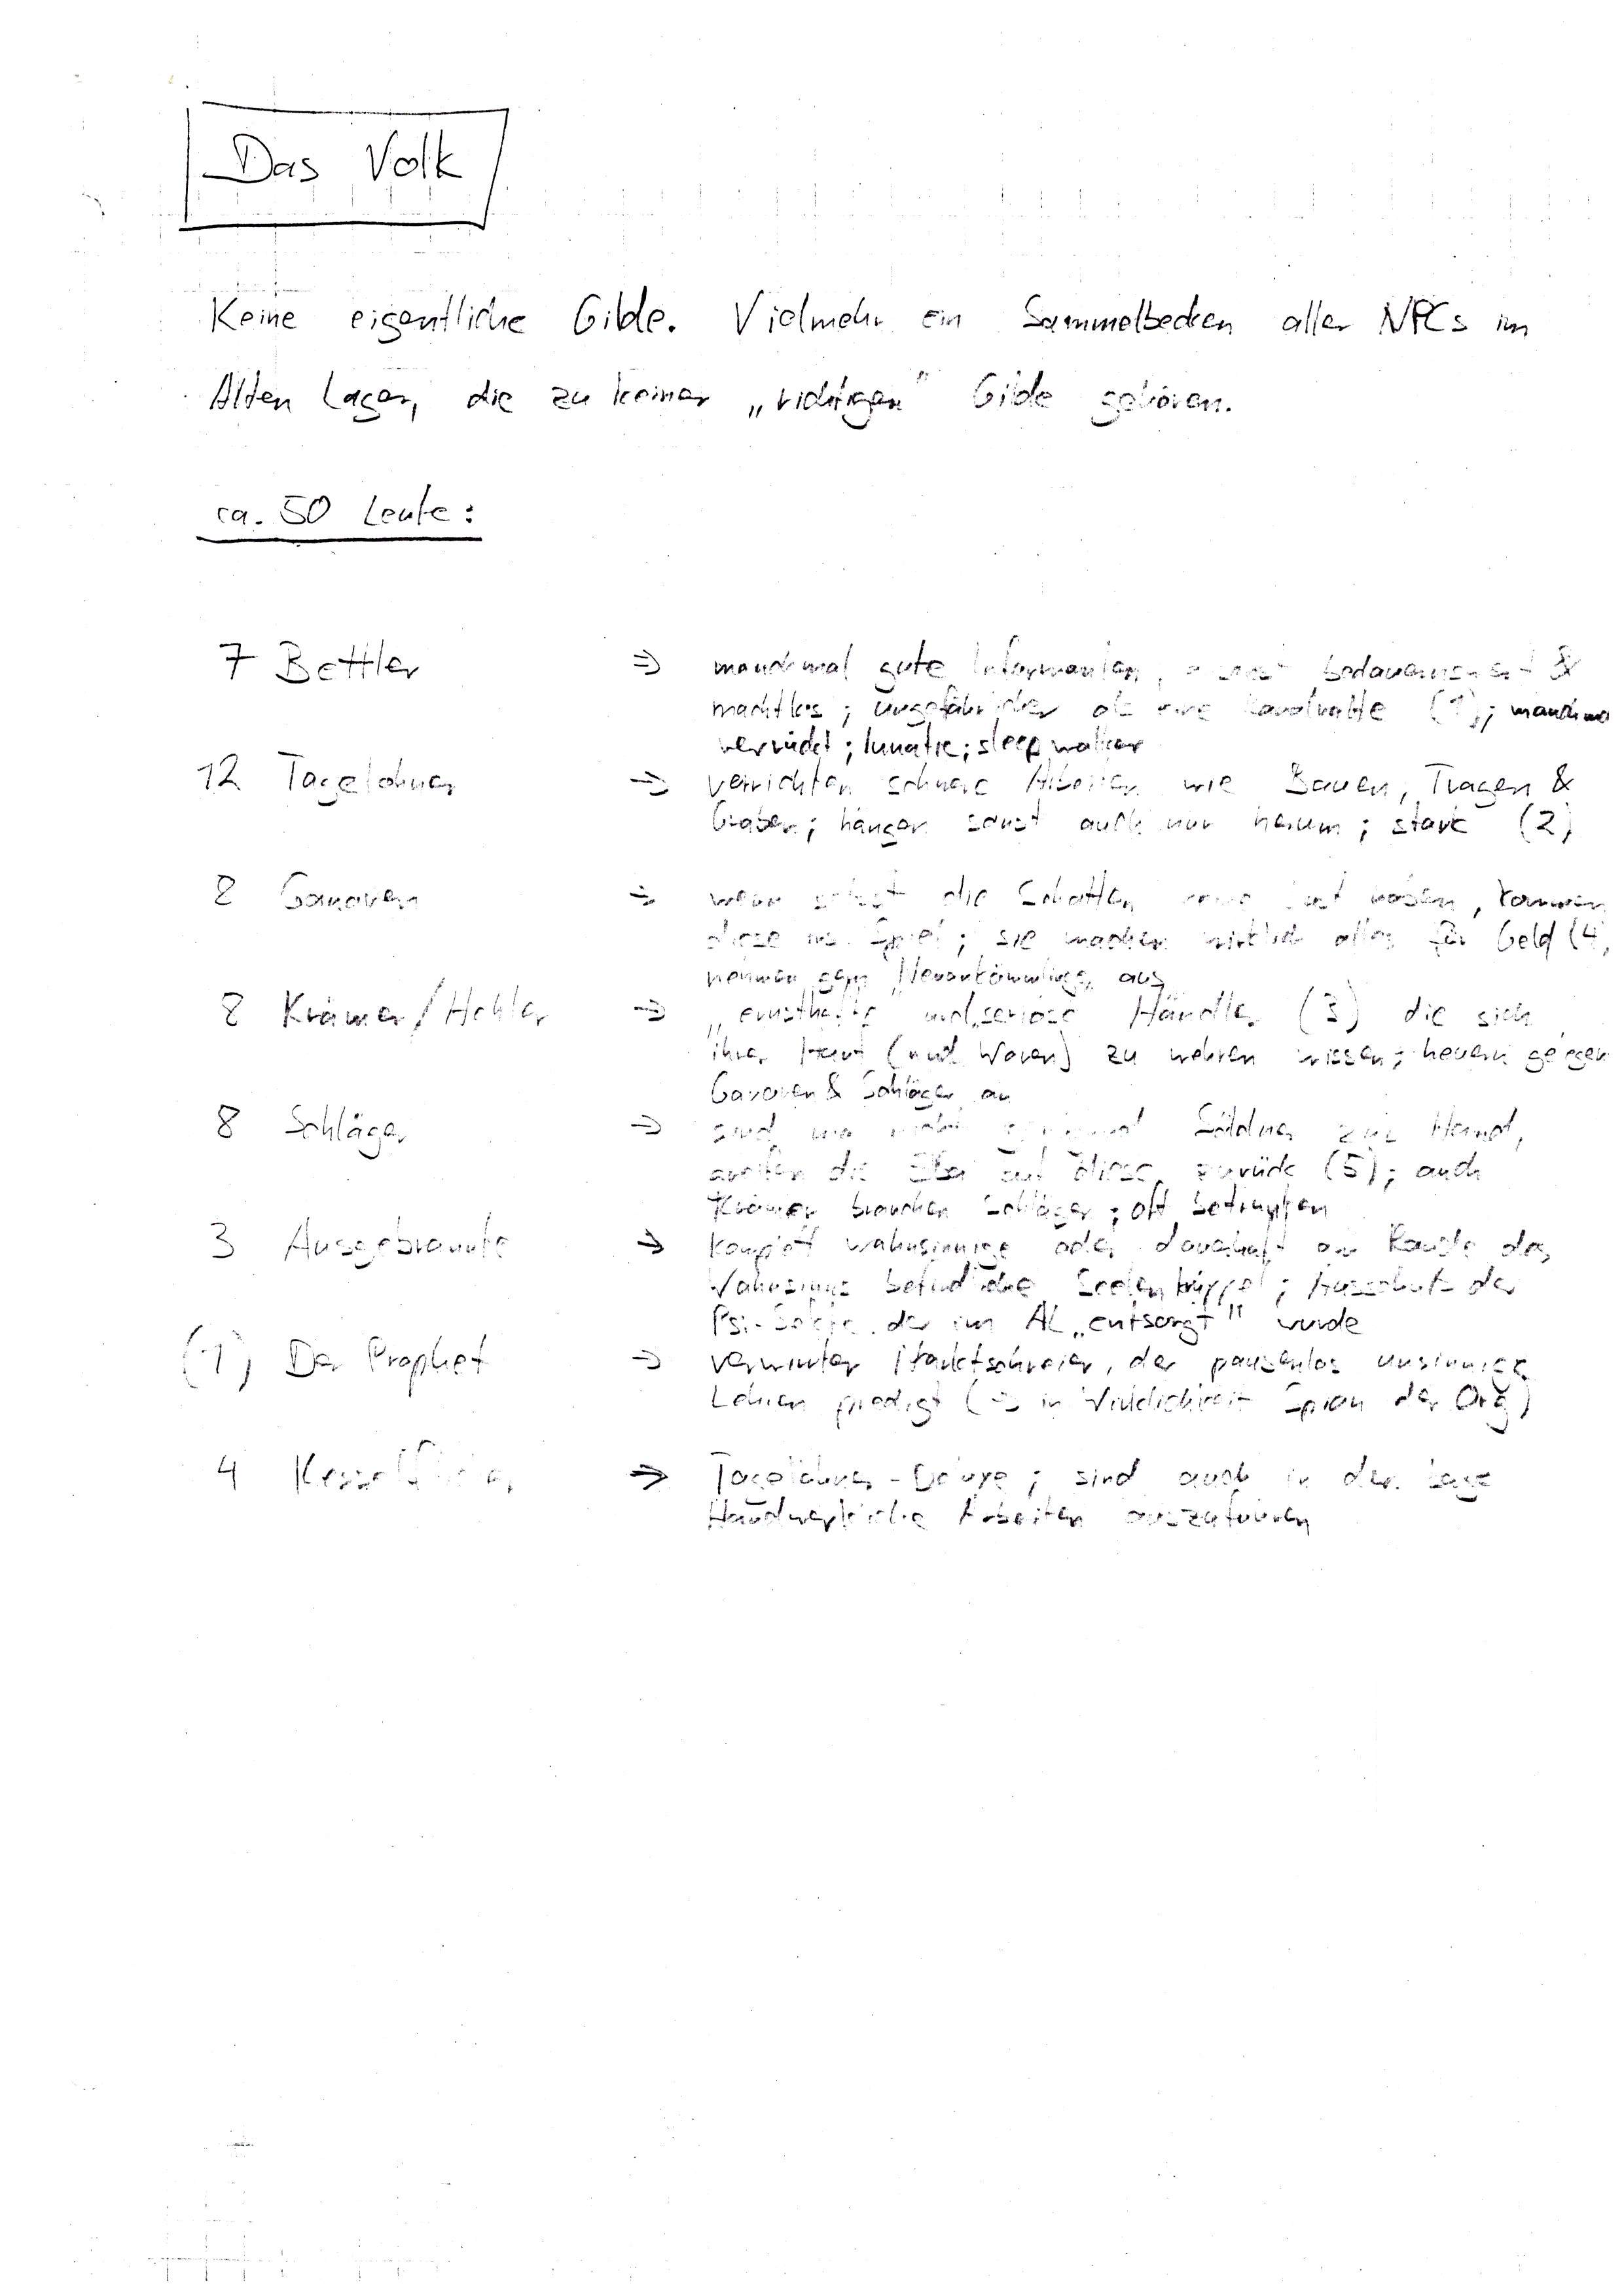 Das Volk
Keine eigentliche Gilde. Vielmehr ein Sammelbecken aller NPCs im
Alten Lager, die zu keiner „richtigen" Gilde gehören.
ca. 50 Leute:
7 Bettler => manchmal gute Informanten, &
machtlos; ungefährlicher als eine (1); manchma
verrückt; lunatic; sleepwalker
12 Tagelöhner => verrichten schwere Arbeiten wie Bauen, Tragen &
Graben; hängen sonst auch nur herum; stark (2)
8 Ganoven => wenn selbst die Schatten haben, kommen
diese ins Spiel; sie machen wirklich alles für Geld (4,
nehmen gern Neuankömmlinge aus
8 Krämer/Hehler => „ernsthafte und seriöse Händler (3) die sich
ihrer Haut (und Waren) zu wehren wissen; heuern gelegen
Ganoven & Schläger an
8 Schläger => sind Söldner zur Hand,
greifen die auf diese zurück (5); auch
Krämer brauchen Schläger; oft betrunken
3 Ausgebrannte => komplett wahnsinnige oder dauerhaft am Rande des
Wahnsinns befindliche Seelenkrüppel; Ausschuß der
Psi-Sekte, der im AL „entsorgt" wurde
(1) Der Prophet => verwirrter Marktschreier, der pausenlos unsinnige
Lehren predigt (=> in Wirklichkeit Spion der Org)
4 => Tagelöhner-Deluxe; sind auch in der Lage
Handwerkliche Arbeiten auszuführen